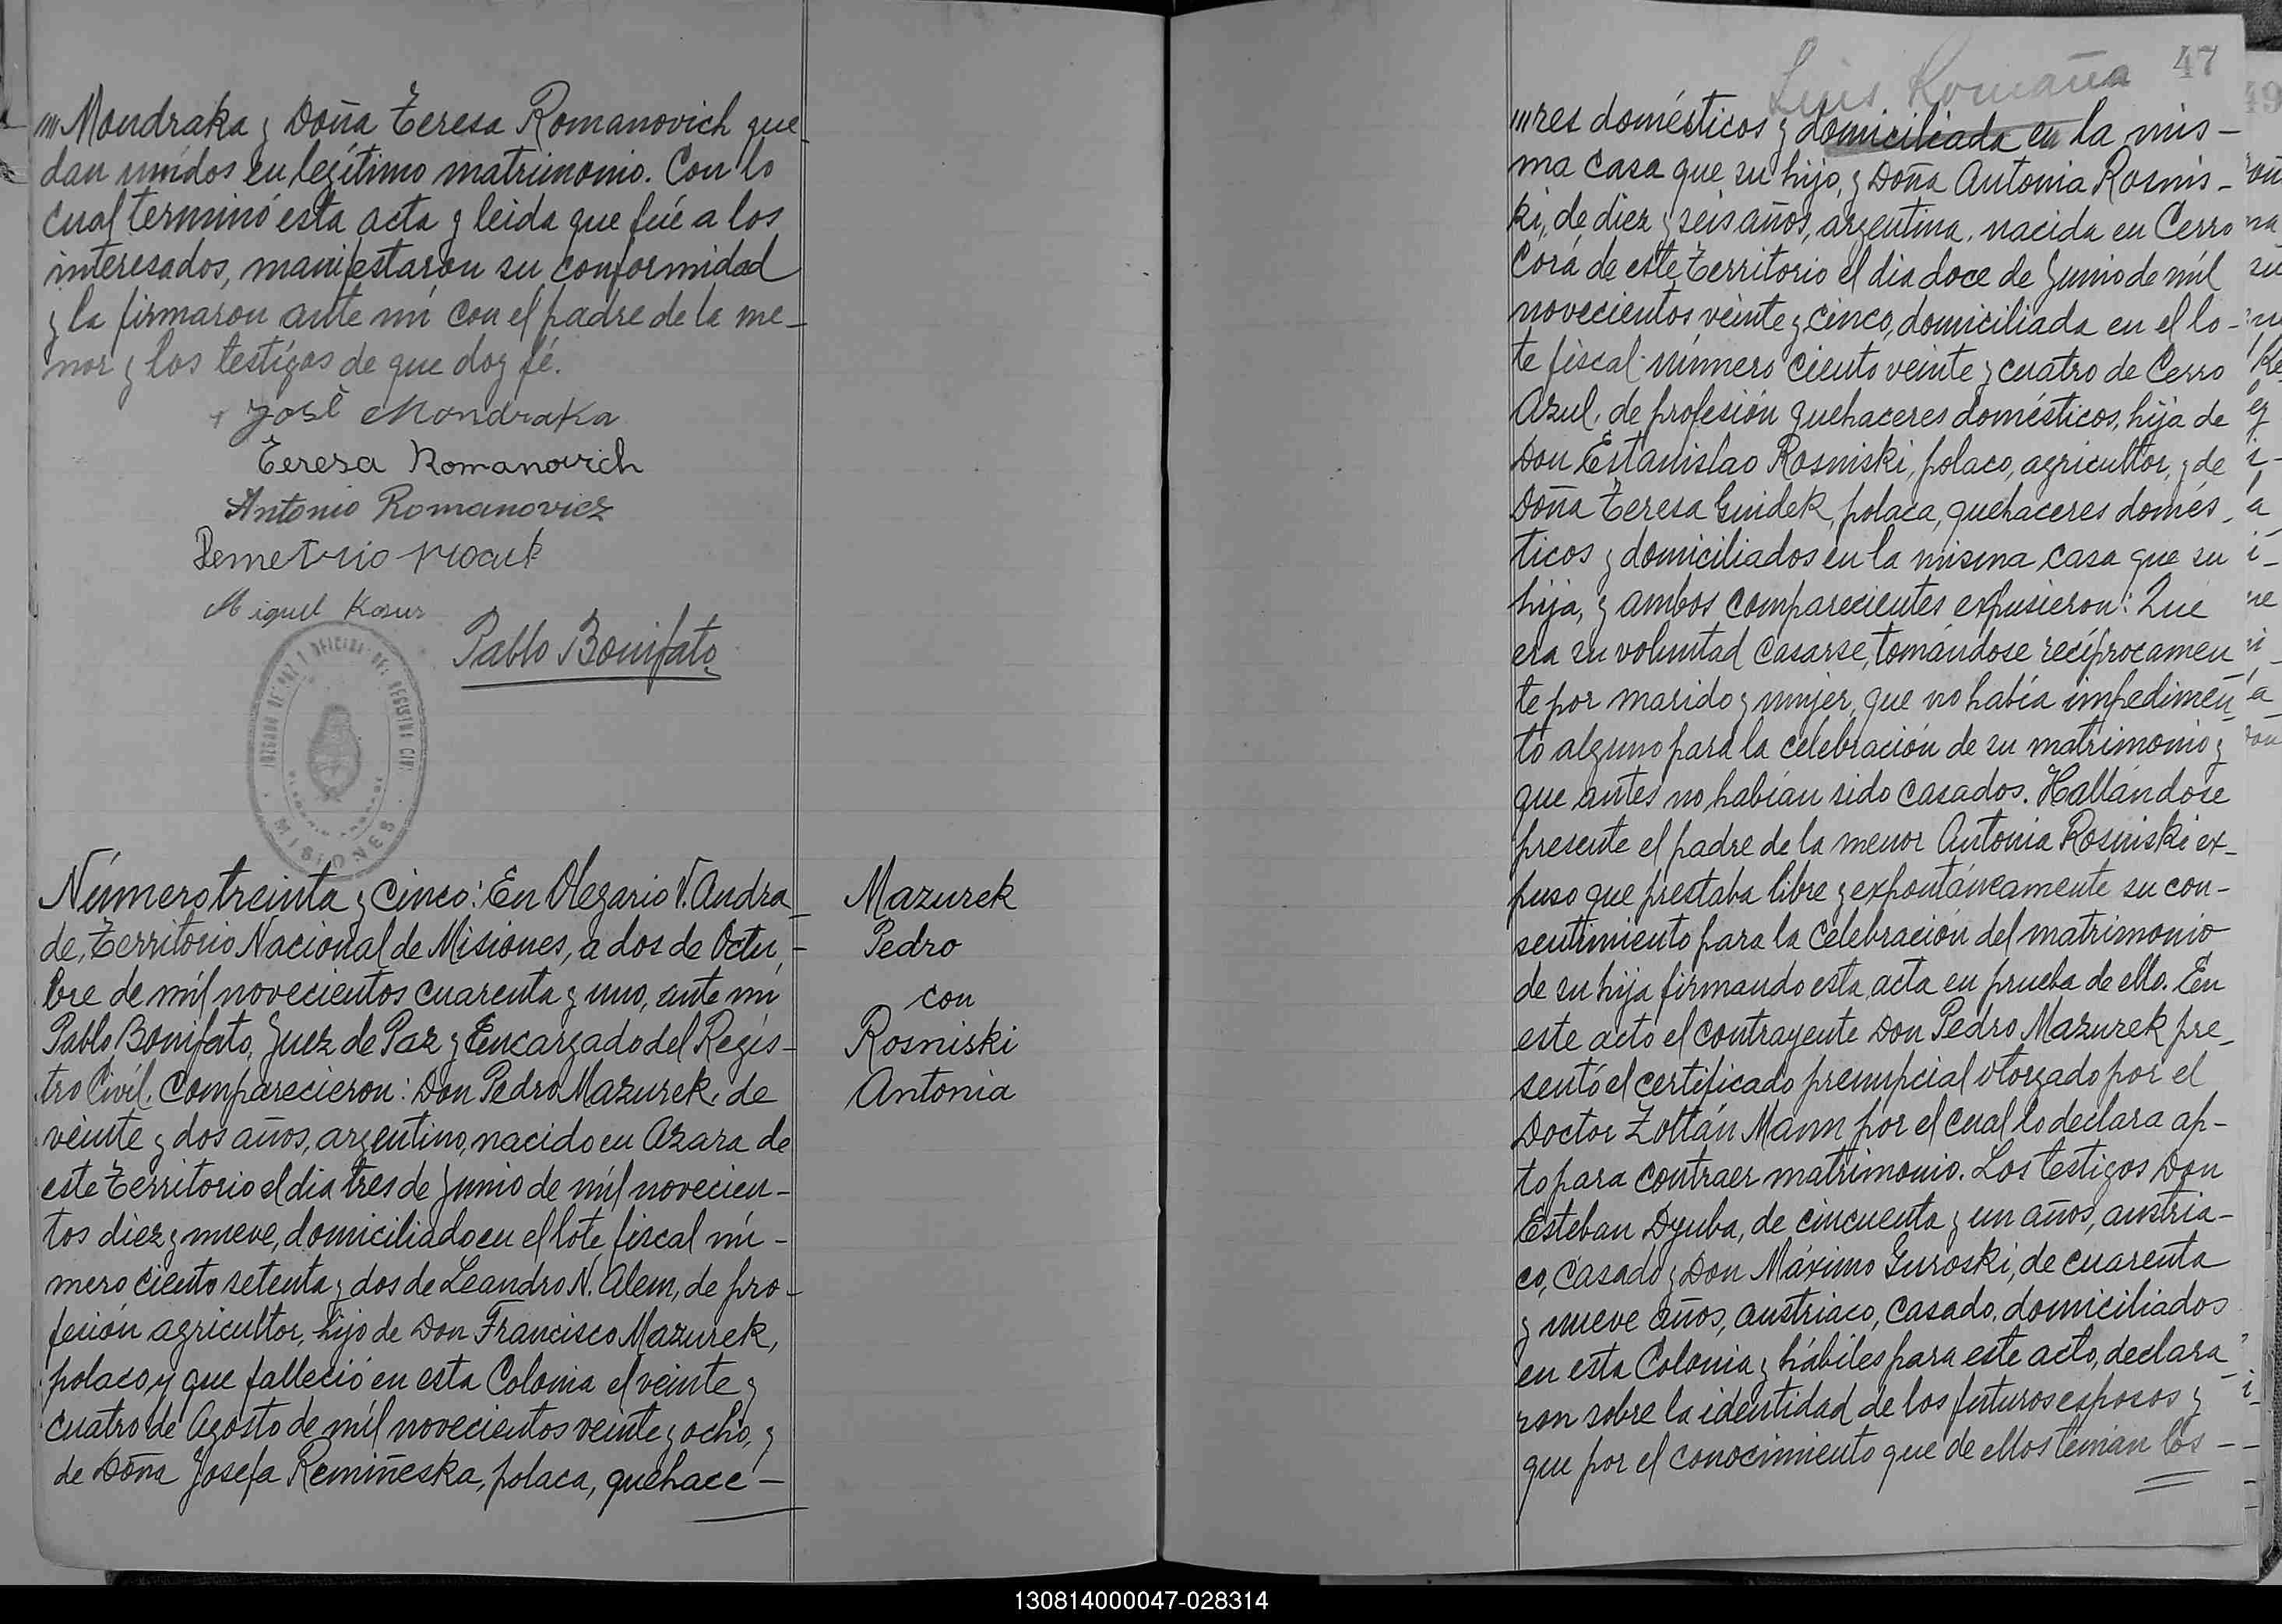 ''' Mondraka y Doña Teresa Romanovich que_
dan unidos en legítimo matrimonio. Con lo
cual terminó esta acta y leida que fué a los
interesados, manifestaron su conformidad
y la firmaron ante mí con el padre de la me_
nor y los testigos de que doy fé.
José Mondraka
Teresa Romanovich
Antonio Romanovicz
Demetrio
Miguel
Pablo Bonifato
JUZGADO DE PAZ Y OFICINA DEL REGISTRO CIVIL
MISIONES
Número treinta y cinco: En Olegario V. Andra_
de, Territorio Nacional de Misiones, a dos de Octu_
bre de mil novecientos cuarenta y uno, ante mi
Pablo Bonifato, Juez de Paz y Encargado del Regis_
tro Civil. Comparecieron: Don Pedro Mazurek, de
veinte y dos años, argentino, nacido en Azara de
este Territorio el dia tres de Junio de mil novecien_
tos diez y nueve, domiciliado en el lote fiscal nú_
mero ciento setenta y dos de Leandro N. Alem, de pro_
fesión agricultor, hijo de Don Francisco Mazurek,
polaco y que falleció en esta Colonia el veinte y
cuatro de Agosto de mil novecientos veinte y ocho, y
de Doña Josefa Remiñeska, polaca, quehace_
Mazurek
Pedro
con
Rosniski
Antonia
47
Luis Romaña
'''res domésticos y domiciliada en la mis_
ma casa que su hijo, y Doña Antonia Rosnis_
ki, de diez y seis años, argentina, nacida en Cerro
Corá de este Territorio el dia doce de Junio de mil
novecientos veinte y cinco, domiciliada en el lo_
te fiscal número ciento veinte y cuatro de Cerro
Azul, de profesión quehaceres domésticos, hija de
Don Estanislao Rosniski, polaco, agricultor, y de
Doña Teresa Guidek, polaca, quehaceres domés_
ticos y domiciliados en la misma casa que su
hija, y ambos comparecientes expusieron: Que
era su voluntad casarse, tomándose recíprocamen_
te por marido y mujer, que no había impedimen_
to alguno para la celebración de su matrimonio y
que antes no habían sido casados. Hallándose
presente el padre de la menor Antonia Rosniski ex_
puso que prestaba libre y expontáneamente su con_
sentimiento para la celebración del matrimonio
de su hija firmando esta acta en prueba de ello. En
este acto el contrayente Don Pedro Mazurek pre_
sentó el certificado prenupcial otorgado por el
Doctor Zoltán Mann por el cual lo declara ap_
to para contraer matrimonio. Los testigos Don
Esteban Dzuba, de cincuenta y un años, austria_
co, casado y Don Máximo Guroski, de cuarenta
y nueve años, austriaco, casado, domiciliados
en esta Colonia y hábiles para este acto, declara_
ron sobre la identidad de los futuros esposos y
que por el conocimiento que de ellos tenian los
130814000047-028314